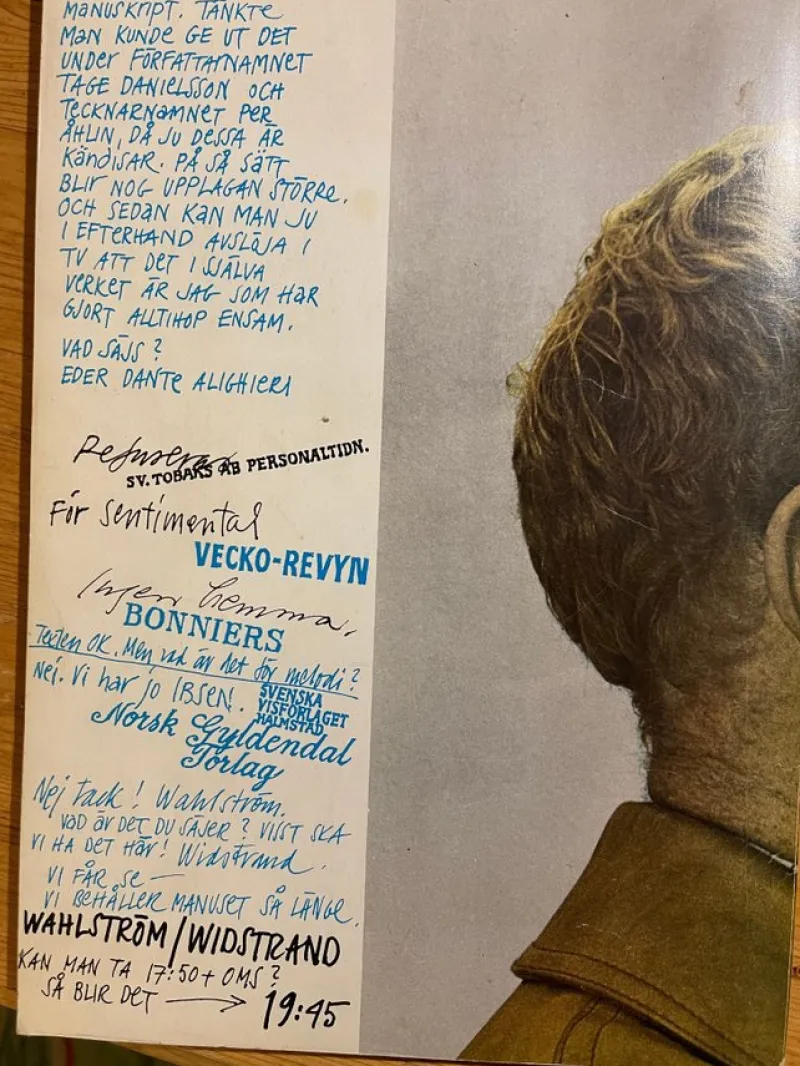 MANUSKRIPT. TÄNKTE
MAN KUNDE GE UT DET
UNDER FÖRFATTARNAMNET
TAGE DANIELSSON OCH
TECKNARNAMNET PER
ÅHLIN, DÅ JU DESSA ÄR
KÄNDISAR. PÅ SÅ SÄTT
BLIR NOG UPPLAGAN STÖRRE.
OCH SEDAN KAN MAN JU
I EFTERHAND AVSLÖJA I
TV ATT DET I SJÄLVA
VERKET ÄR JAG SOM HAR
GJORT ALLTIHOP ENSAM.
VAD SÄJS?
EDER DANTE ALIGHIERI
Refuseras
SV. TOBAKS AB PERSONALTIDN.
För sentimental
VECKO-REVYN
Ingen hemma.
BONNIERS
Texten OK. Men vad är det för melodi?
SVENSKA
VISFÖRLAGET
HALMSTAD
Nej. Vi har jo IBSEN.
Norsk Gyldendal
Forlag
Nej tack! Wahlström.
VAD ÄR DET DU SÄJER? VISST SKA
VI HA DET HÄR! Widstrand.
VI FÅR SE —
VI BEHÅLLER MANUSET SÅ LÄNGE.
WAHLSTRÖM/WIDSTRAND
KAN MAN TA 17:50 + OMS?
SÅ BLIR DET → 19:45